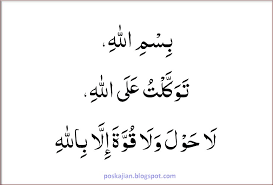 بِسْمِ اللهِ،
تَوَكَّلْتُ عَلَى اللهِ،
لَا حَوْلَ وَلَا قُوَّةَ إِلَّا بِاللهِ
poskajian.blogspot.com